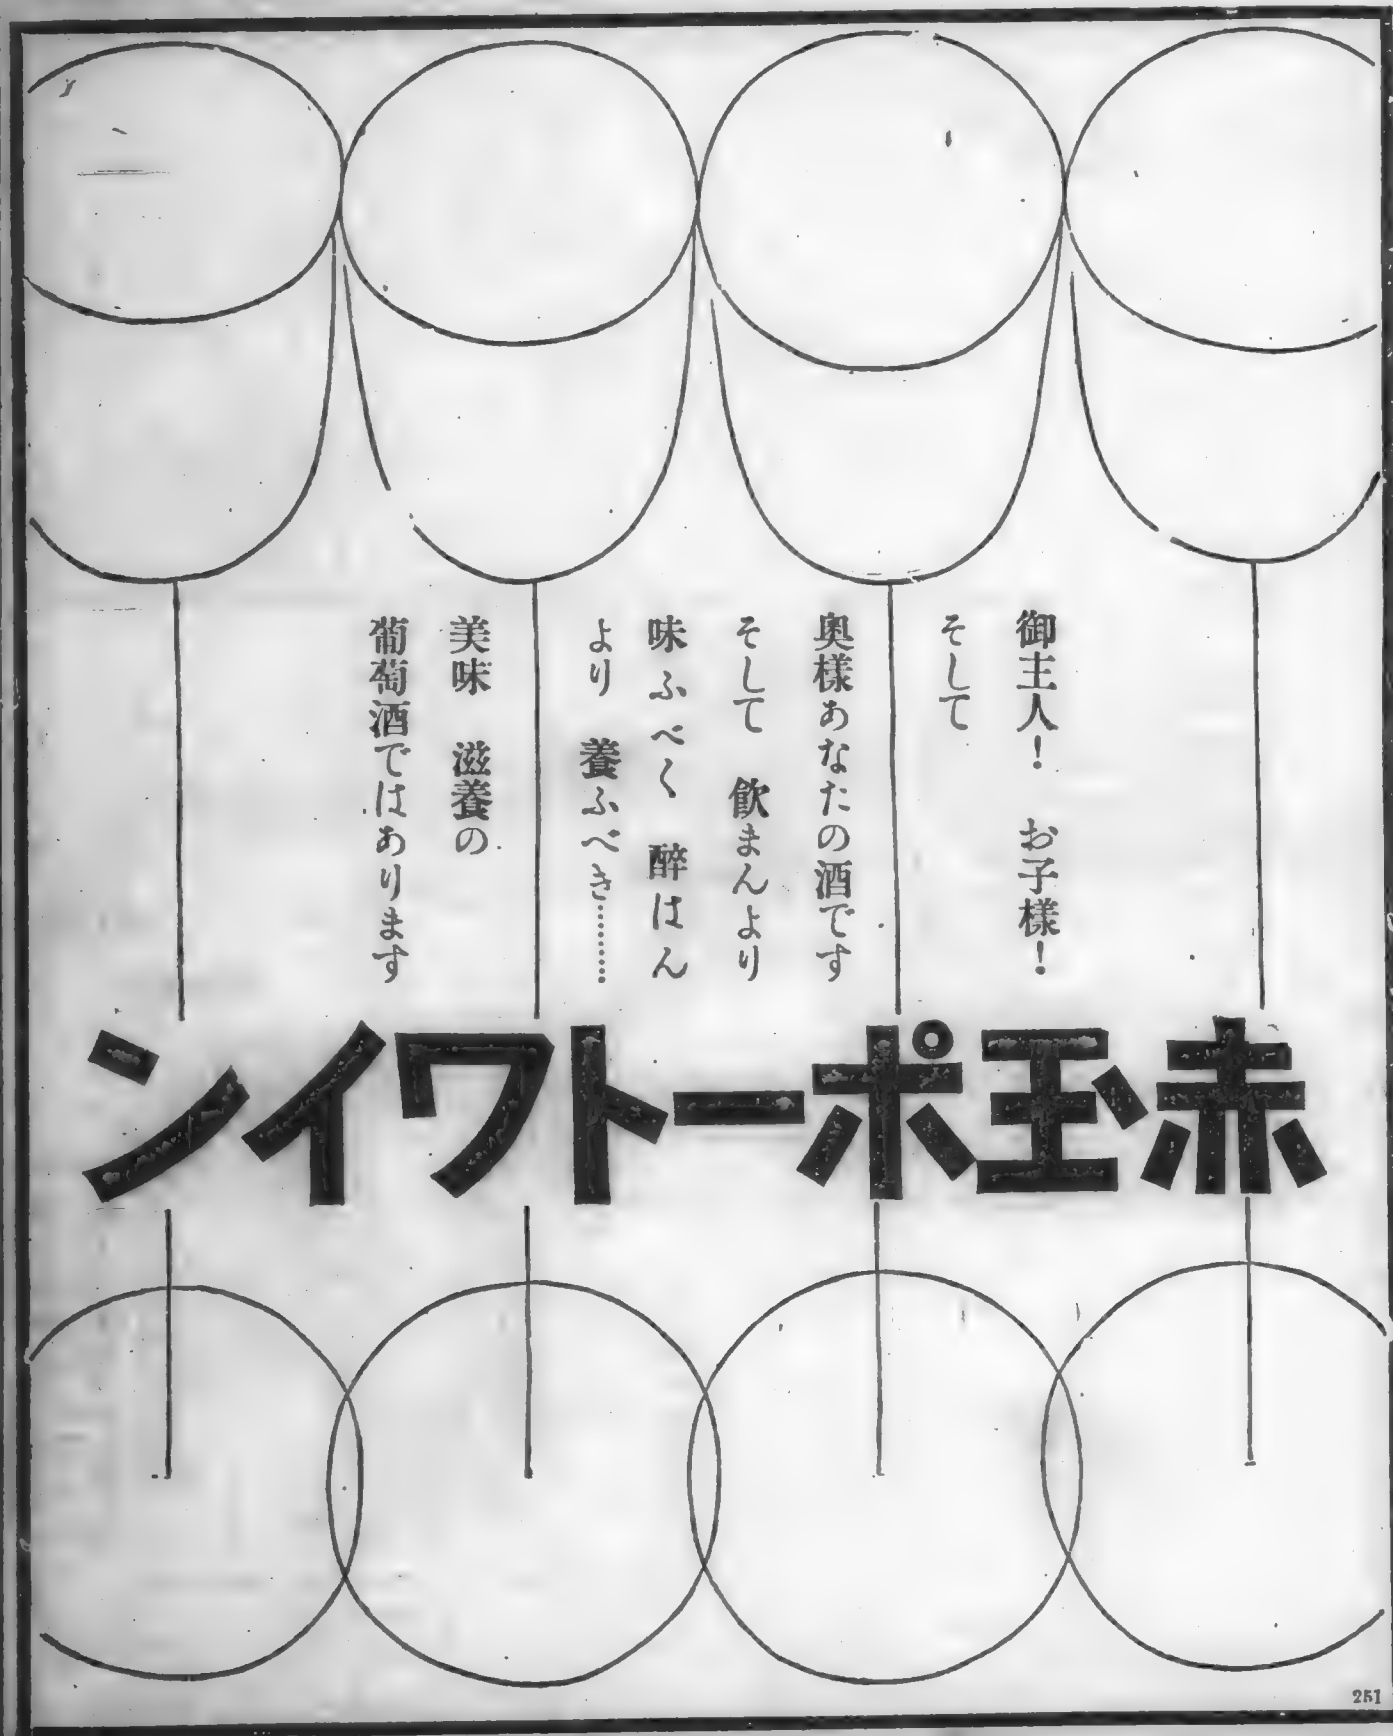 御主人！ お子様！
そして
奥様あなたの酒です
そして 飲まんより
味ふべく 醉はん
より 養ふべき………
美味 滋養の
葡萄酒ではあります
赤玉ポートワイン
251